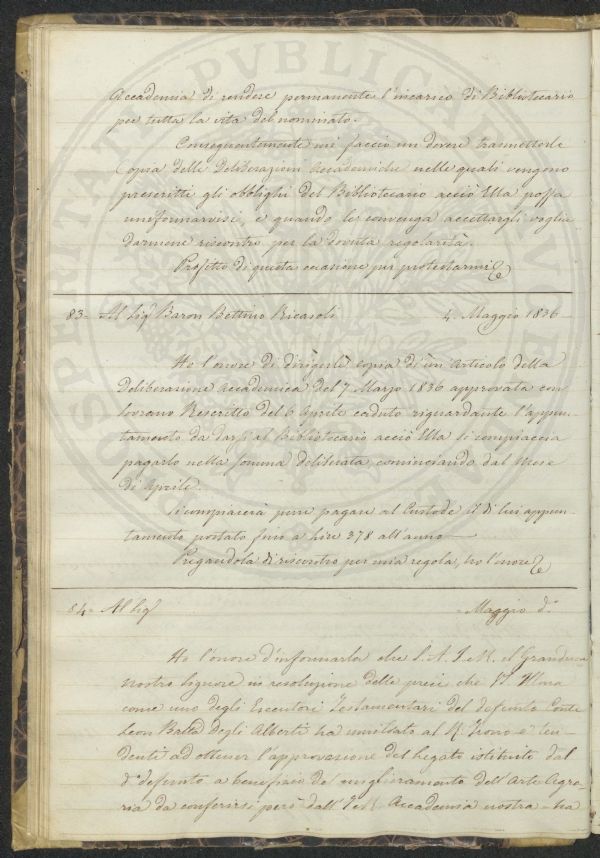 Accademia di rendere permanente l'incarico di Bibliotecario
per tutta la vita del nominato.
Conseguentemente mi faccio un dovere trasmetterle
Copia delle Deliberazioni Accademiche nelle quali vengono
prescritti gli obblighi del Bibliotecario acciò Ella possa
uniformarvisi, e quando le convenga accettargli voglia
darmene riscontro per la dovuta regolarità.
Profitto di questa occasione per protestarmi
83= Al Sig.r Baron Bettino Ricasoli 4. Maggio 1836
Ho l'onore di dirigerle copia di un Articolo della
Deliberazione Accademica del 7 Marzo 1836 approvata con
Sovrano Rescritto del 6 Aprile caduto riguardante l'appun-
tamento da darsi al Bibliotecario acciò Ella si compiaccia
pagarlo nella somma deliberata cominciando dal Mese
di Aprile.
Si compiacerà pure pagare al Custode il di lui appun-
tamento portato fino a Lire 378 all'anno
Pregandola di riscontro per mia regola, ho l'onore
84= Al Sig.r = Maggio d.o
Ho l'onore d'informarla che S.A.I. e R. il Granduca
nostro Signore in resoluzione delle preci che
come uno degli Esecutori Testamentari del defunto Conte
Leon Batta degli Alberti ha umiliato al R. Trono e ten-
denti ad ottener l'approvazione del Legato istituito dal
d.o defunto a benefizio de' miglioramento dell'Arte Agra-
ria da conferirsi però dall'I. e R. Accademia nostra - ha
PVBLICAE